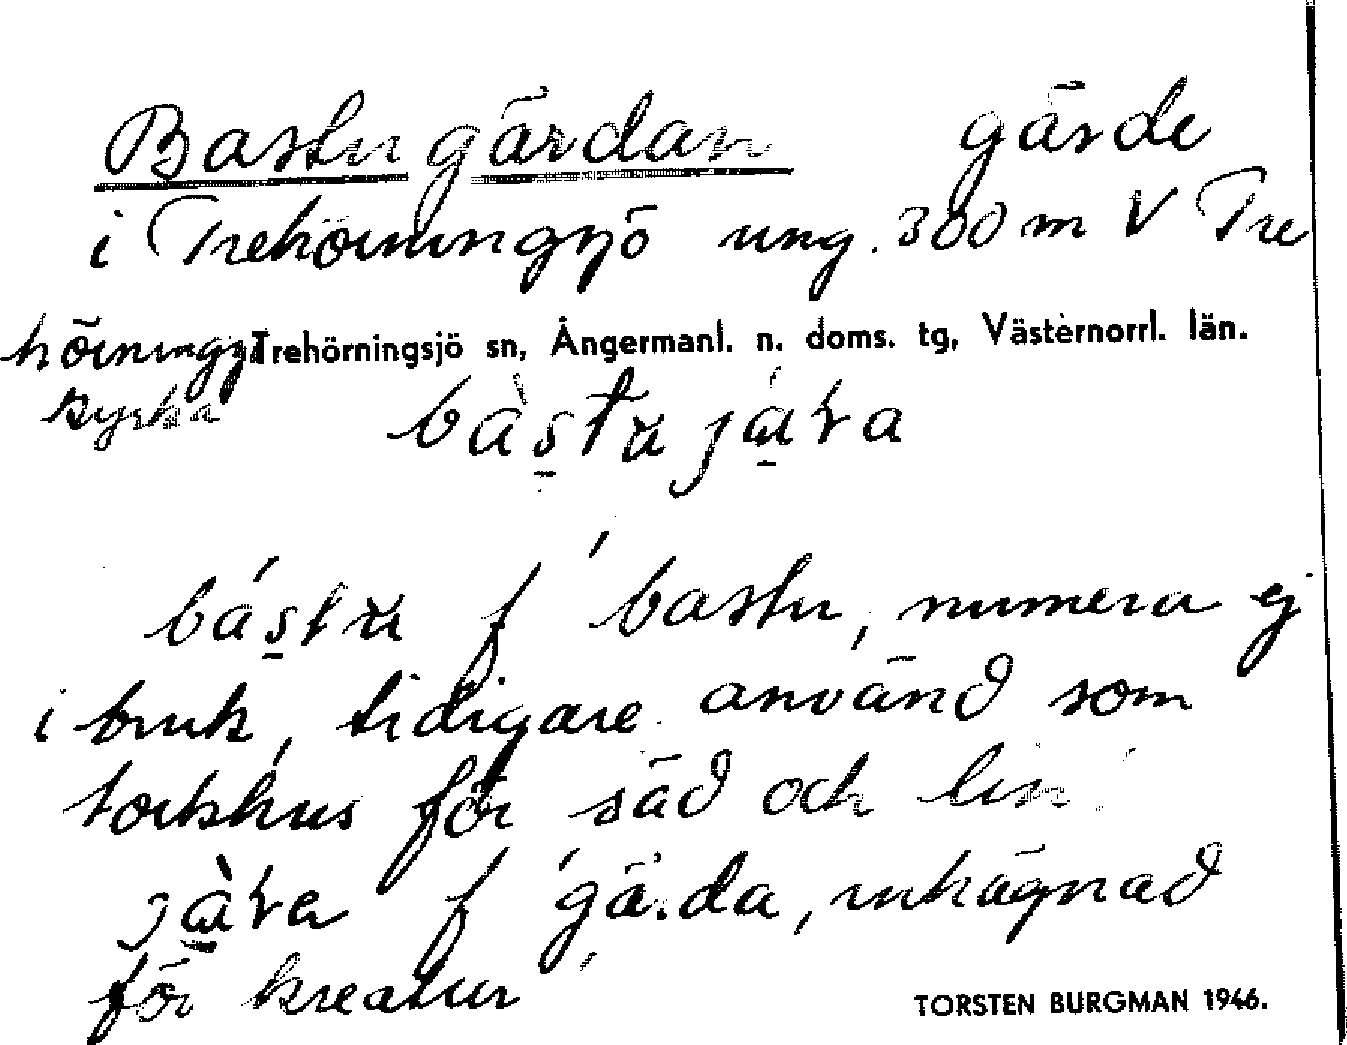 Bastugärdan gärde
i Trehörningsjö ung. 300 m V Tre
hörningsjö Trehörningsjö sn, Ångermanl. n. doms. tg, Västernorrl. län.
kyrka
bàstu jàra
bástu f 'bastu, numera ej
i bruk, tidigare använd som
torkhus för säd och lin'
jàra f 'gärda, inhägnad
för kreatur'
TORSTEN BURGMAN 1946.